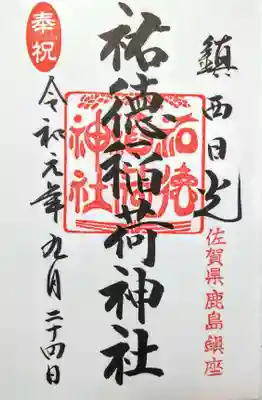 鎮西日光
佐賀県鹿島鎮座
祐徳稲荷神社
奉祝
令和元年九月二十四日